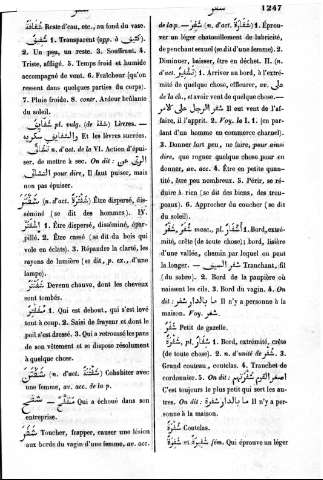 شفر
شفر
1247
شُفَافَةٌ Reste d'eau, etc., au fond du vase.
شَفِيفٌ 1. Transparent (opp. à كثيف).
2. Un peu, un reste. 3. Souffrant. 4.
Triste, affligé. 5. Temps froid et humide
accompagné de vent. 6. Fraîcheur (qu'on
ressent dans quelques parties du corps).
7. Pluie froide. 8. coner. Ardeur brûlante
du soleil.
شَفَائِفُ pl. vulg. (de شفة) Lèvres. —
Et les lèvres sucrées.
n. d'act. de la VI. Action d'épui-
ser, de mettre à sec. On dit :
pour dire, Il faut puiser, mais
non pas épuiser.
(n. d'act. ) Être dispersé, dis-
séminé (se dit des hommes). IV.
1. Être dispersé, disséminé, épar-
pillé. 2. Être cassé (se dit du bois qui
vole en éclats). 3. Répandre la clarté, les
rayons de lumière (se dit, p. ex., d'une
lampe).
Devenu chauve, dont les cheveux
sont tombés.
1. Qui est debout, qui s'est levé
tout à coup. 2. Saisi de frayeur et dont le
poil se dresse. 3. Qui a retroussé les pans
de son vêtement et se dispose résolument
à quelque chose.
(n. d'act. ) Cohabiter avec
une femme, av. acc. de la p.
Qui a échoué dans son
entreprise.
شَفَرَ Toucher, frapper, causer une lésion
aux bords du vagin d'une femme, av. acc.
de la p. — شَفِرَ (n. d'act. شَفَارَةٌ) 1. Éprou-
ver un léger chatouillement de lubricité,
de penchant sexuel (se dit d'une femme). 2.
Diminuer, baisser, être en déchet. II. (n.
d'act. تَشْفِيرٌ) 1. Arriver au bord, à l'extré-
mité de quelque chose, effleurer, av. على
de la ch., et avoir vent de quelque chose. —
شفر الرجل على الامر Il est vent de l'af-
faire, il l'apprit. 2. Voy. le I. 1. (en par-
lant d'un homme en commerce charnel).
3. Donner fort peu, ne faire, pour ainsi
dire, que roguer quelque chose pour en
donner, av. acc. 4. Être en petite quan-
tité, être peu nombreux. 5. Périr, se ré-
duire à rien (se dit des biens, des trou-
peaux). 6. Approcher du coucher (se dit
du soleil).
شُفْرٌ masc., pl. أَشْفَارٌ 1. Bord, extré-
mité, crête (de toute chose); bord, lisière
d'une vallée, chemin par lequel on peut
la longer. — شفر السيف Tranchant, fil
(du sabre). 2. Bord de la paupière où
naissent les cils. 3. Bord du vagin. 4. On
dit : ما بالدار شفر Il n'y a personne à la
maison. Voy. شفر.
Petit de gazelle.
شَفْرَةٌ, pl. شِفَارٌ 1. Bord, extrémité, crête
(de toute chose). 2. n. d'unité de شفر. 3.
Grand couteau, coutelas. 4. Tranchet de
cordonnier. 5. On dit : اصغر القوم شفرتهم
C'est toujours le plus petit qui sert les au-
tres. On dit : ما بالدار شفرة Il n'y a per-
sonne à la maison.
شَفْرَةٌ Coutelas.
شَفِرَةٌ et شَفِيرَةٌ fém. Qui éprouve un léger